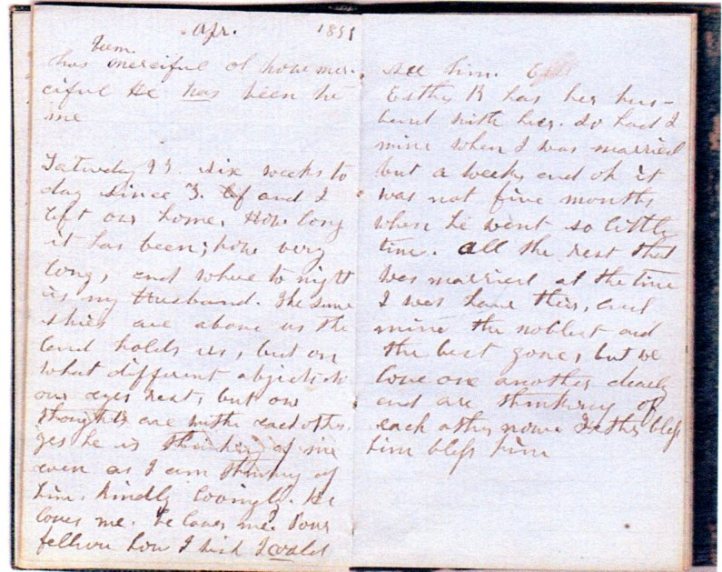 Apr. 1851
has merciful oh how mer-
ciful He has been to
me
Saturday six weeks to
day since and I
left our home. How long
it has been, how very
long, and where to night
is my Husband. The same
skies are above us the
land holds us, but on
what different objects do
our eyes rest, but our
thoughts are with each other.
yes he is thinking of me
even as I am thinking of
him. Kindly lovingly. He
loves me. he loves me. Poor
fellow how I wish I could
see him.
Esther B has her hus-
band with her. So had I
mine when I was married
but a week, and oh it
was not five months
when he went so little
time. All the rest that
was married at the time
I was have theirs, and
mine the noblest and
the best gone, but we
love one another dearly
and are thinking of
each other now. Father bless
him bless him